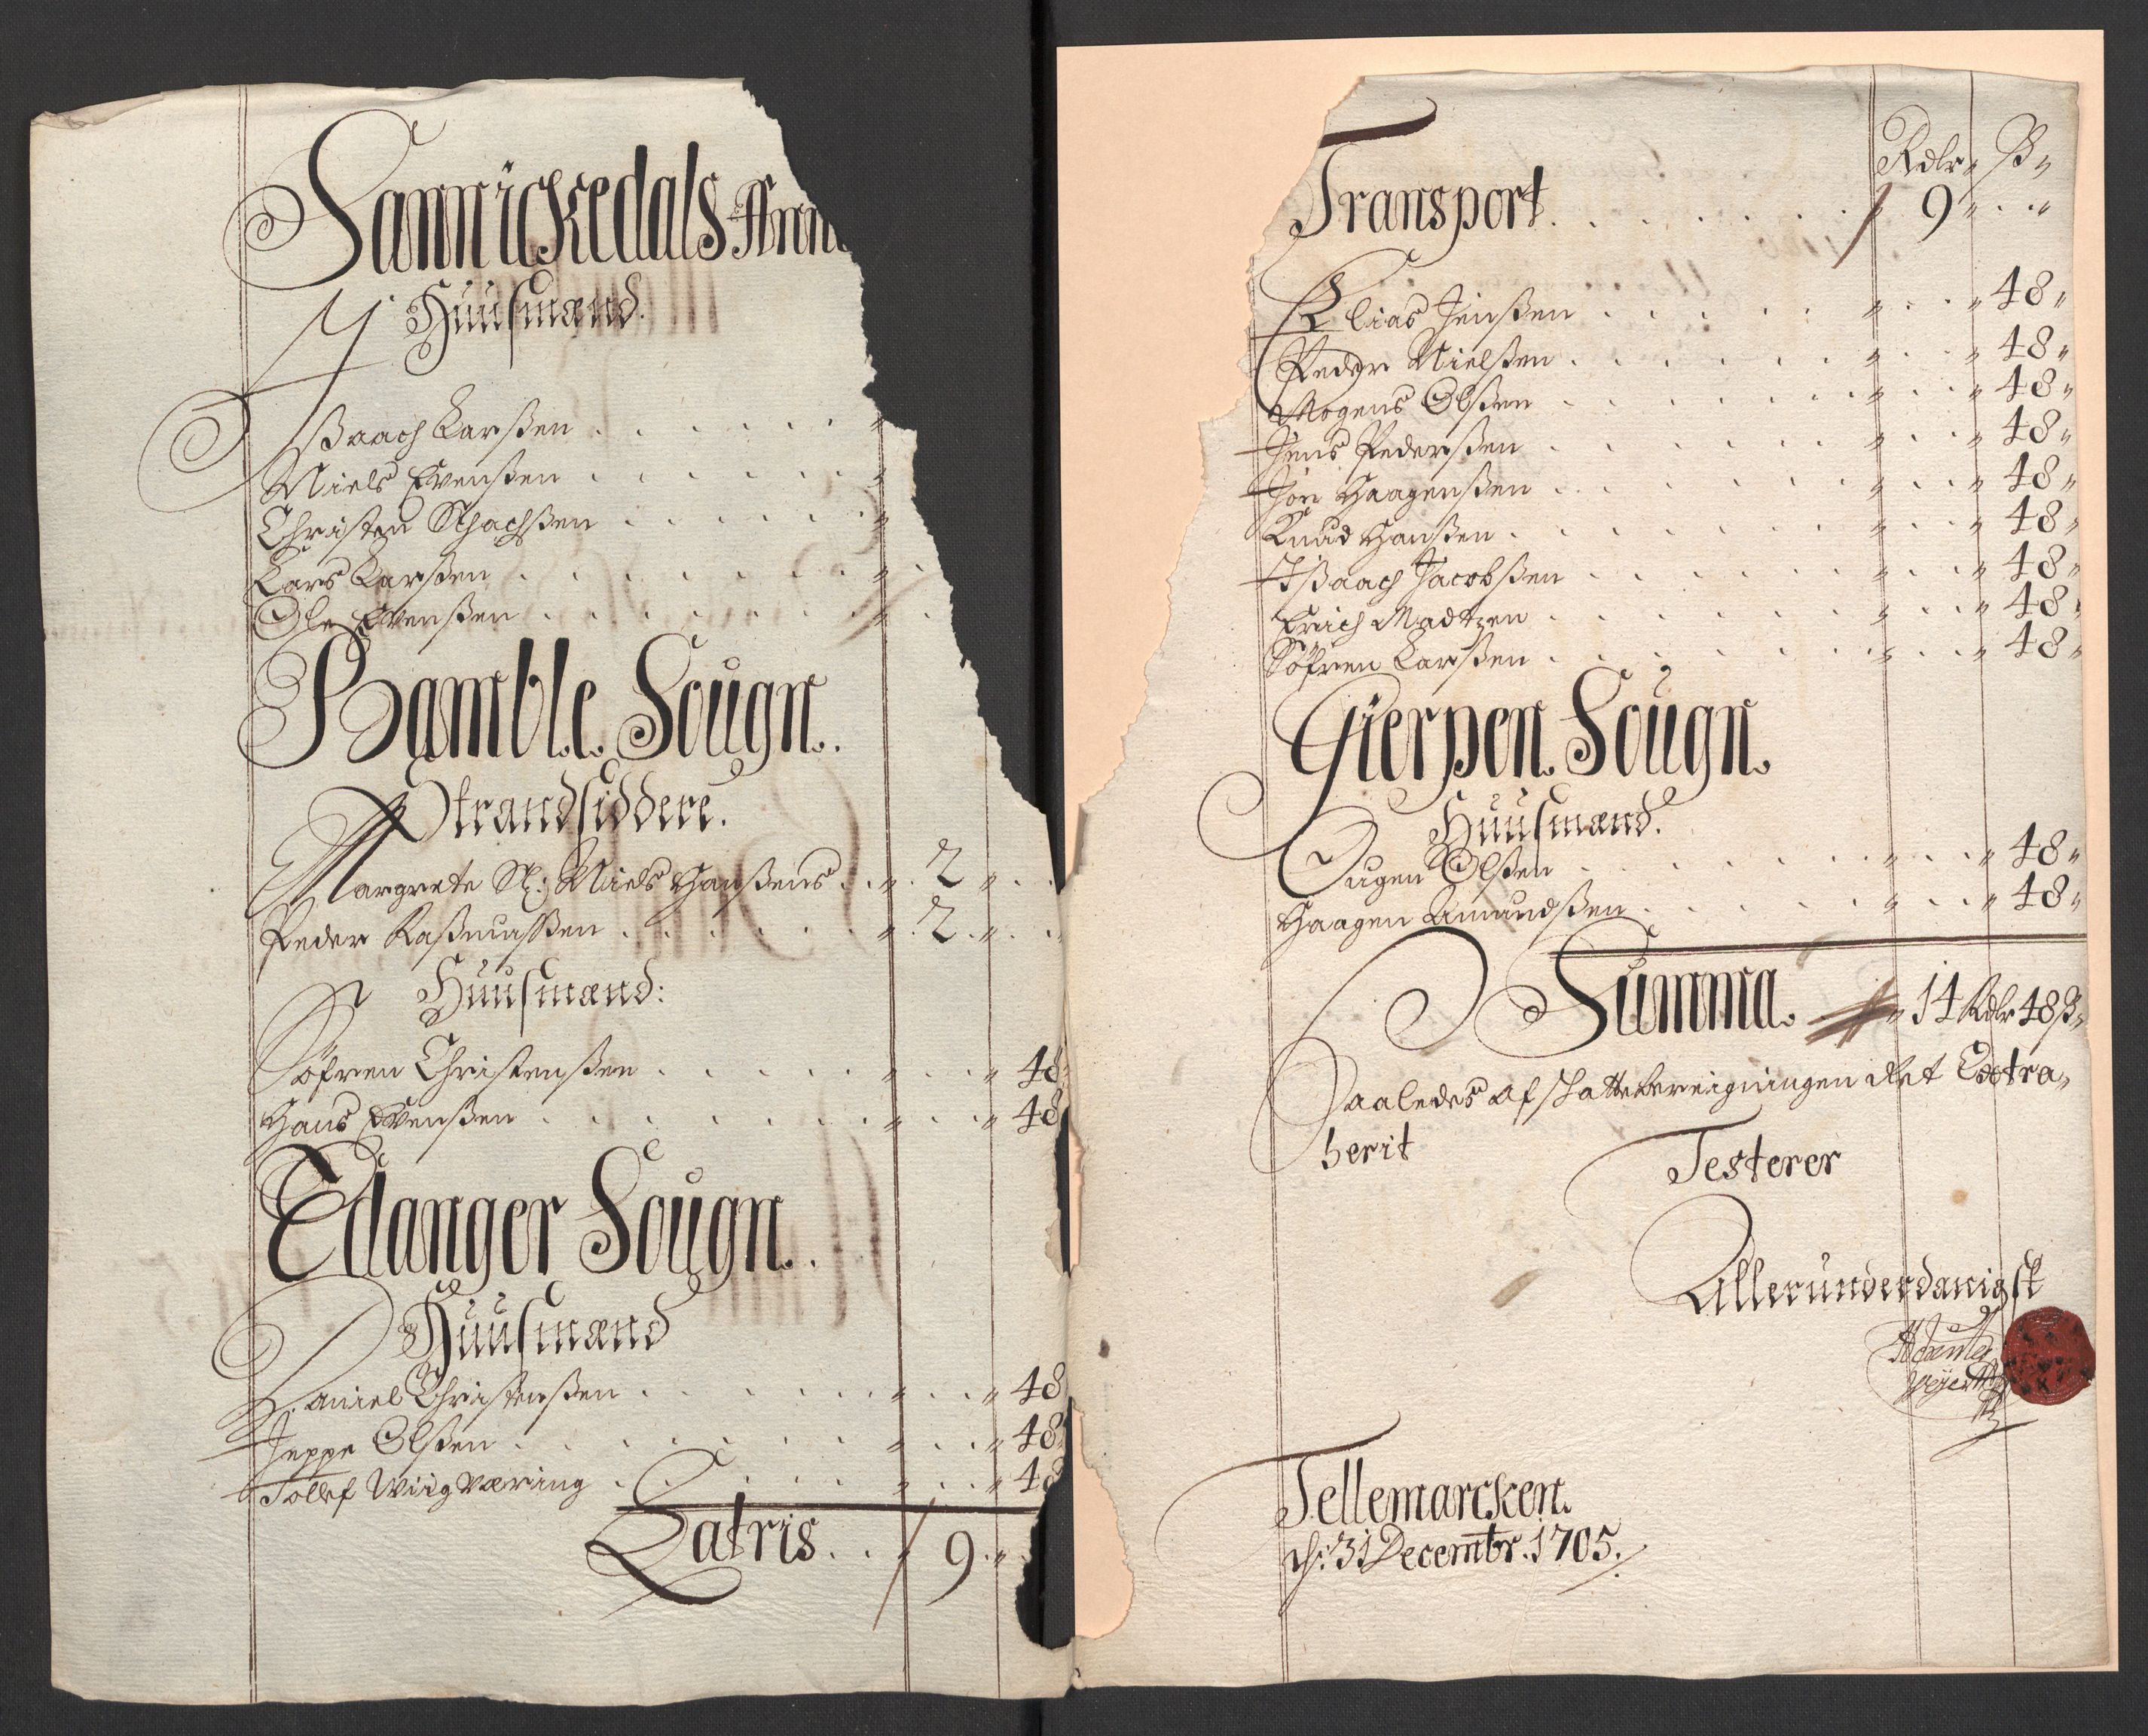 Sannickedals
Huusmænd.
Ißaach Larßen . . . . . "
Niels Evenßen . . . . . "
Christen . . . . . "
Lars Larßen . . . . . "
Ole Evenßen . . . . . "
Bamble Sougn.
Strandsiddere.
Margrete Sl: Niels Hanßens . . " 2 "
Peder Raßmußen . . . . . " 2 "
Huusmænd:
Söfren Christenßen . . . . . " . . " 48
Hans Evenßen . . . . . " . . " 48
Edanger Sougn.
Huusmænd
Daniel Christenßen . . . . . " . . " 48
Jeppe Olßen . . . . . " . . " 48
Tollef Wiigværing . . . . . " . . " 48
Latris . . " 9 "
Rdlr " ß "
Transport . . . . . " 9 " . . "
Elias Jenßen . . . . . " . . " 48 "
Peder Nielßen . . . . . " . . " 48 "
Mogens Olßen . . . . . " . . " 48 "
Jens Pederßen . . . . . " . . " 48 "
Jon Haagenßen . . . . . " . . " 48 "
Knud Hanßen . . . . . " . . " 48 "
Ißaach Jacobßen . . . . . " . . " 48 "
Erich Madtzen . . . . . " . . " 48 "
Söfren Larßen . . . . . " . . " 48 "
Gierpen Sougn.
Huusmænd.
Ougen Olßen . . . . . " . . " 48 "
Haagen Amundßen . . . . . " . . " 48 "
Summa. . . " 14 Rdlr 48 ß "
Saaledes af schattebereigningen Ret Extra,
herit
Testerer
Allerunderdanigst
Tellemarcken.
d: 31 Decembr. 1705.